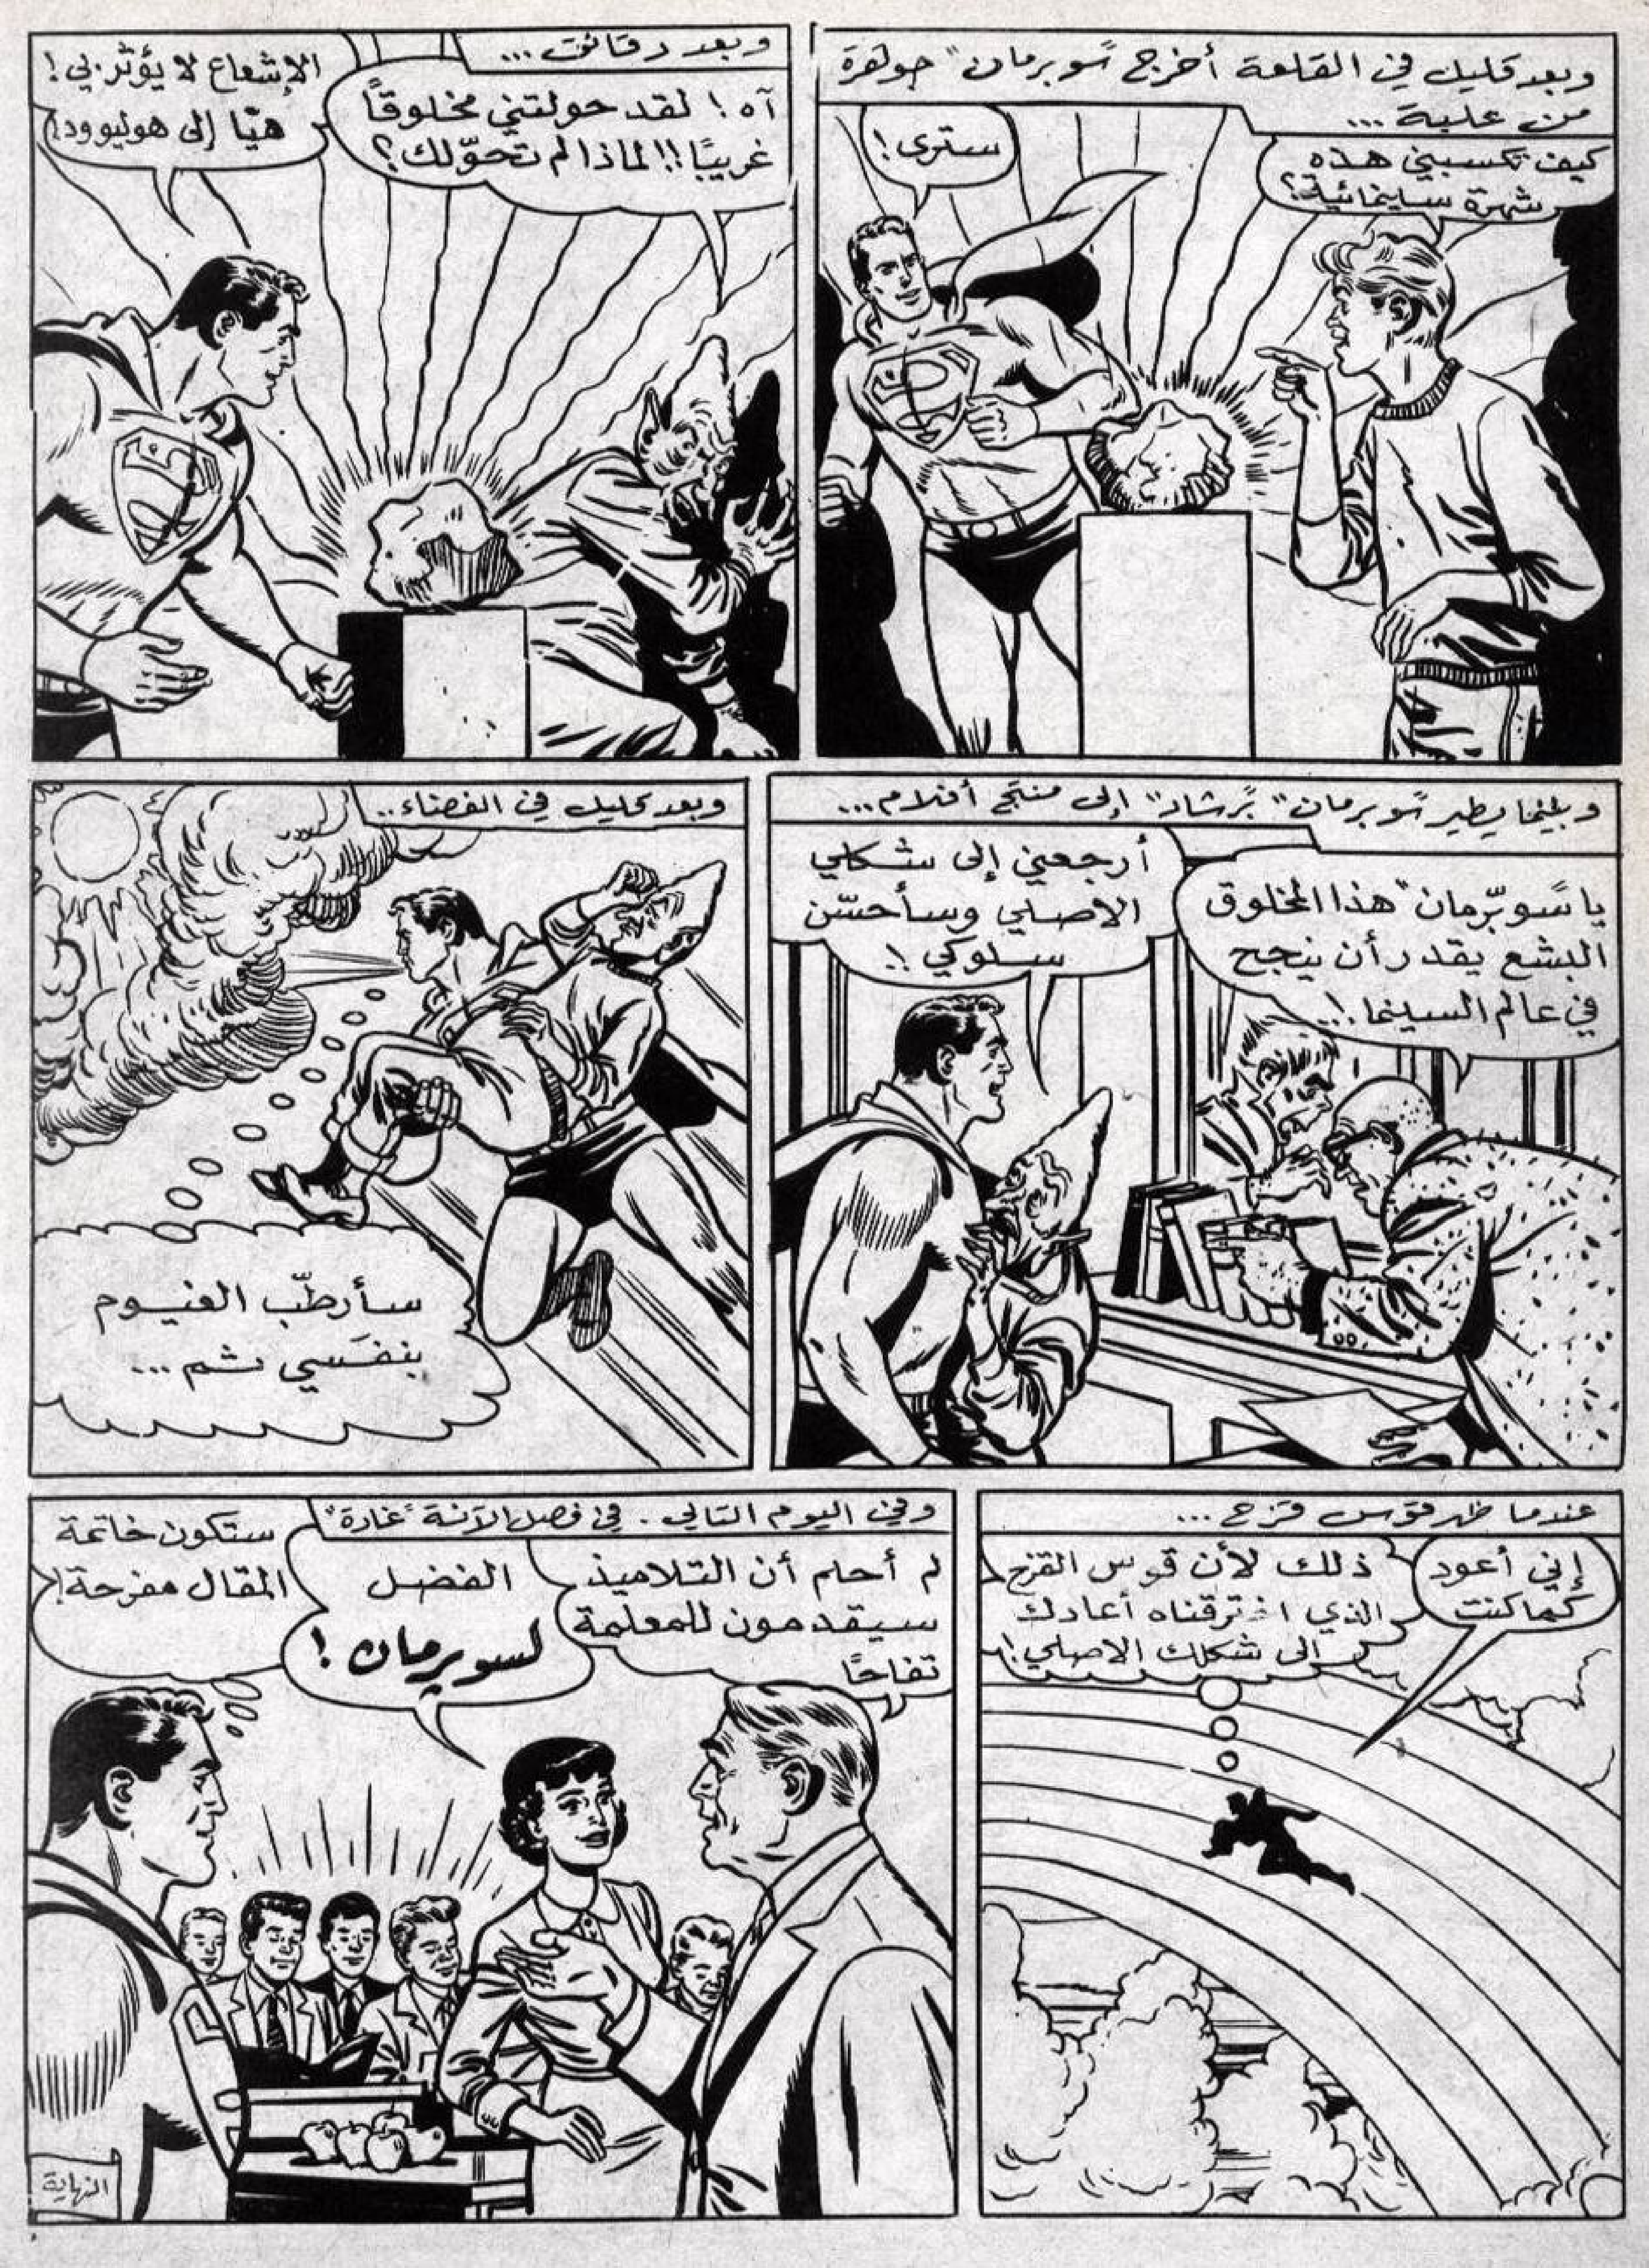 وبعد قليل في القلعة أخرج "سوبرمان" جوهرة
من علبة ...
كيف تكسبني هذه
شهرة سينمائية؟
سترى!
وبعد دقائق ...
آه! لقد حولتني مخلوقاً
غريبًا!! لماذا لم تحوّلك؟
الإشعاع لا يؤثر بي!
هيّا إلى هوليوود!
وبينما يطير "سوبرمان" "برشاد" إلى منتج أفلام...
يا "سوبّرمان" هذا المخلوق
البشع يقدر أن ينجح
في عالم السينما!..
أرجعني إلى شكلي
الاصلي وسأحسّن
سلوكي!!
وبعد قليل في الفضاء..
سأرطّب الغيوم
بنفَسي ثم ...
عندما ظهر قوس قزح ...
إني أعود
كما كنت
ذلك لأن قوس القزح
الذي اخترقناه أعادك
إلى شكلك الاصلي!
وفي اليوم التالي . في فصل الآنسة "غادة"
لم أحلم أن التلاميذ
سيقدمون للمعلمة
تفاحًا
الفضل
لسوبرمان!
ستكون خاتمة
المقال مفرحة!
النهاية